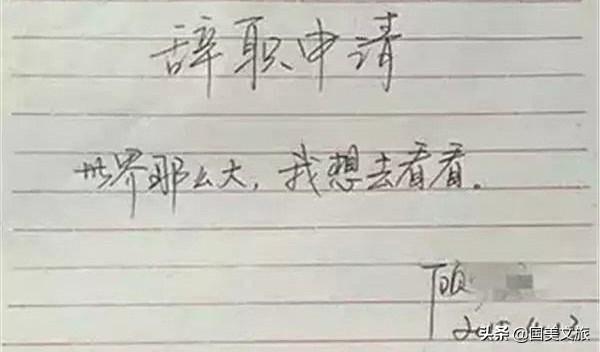 辞职申请
世界那么大，我想去看看。
顾
头条 @国美文旅